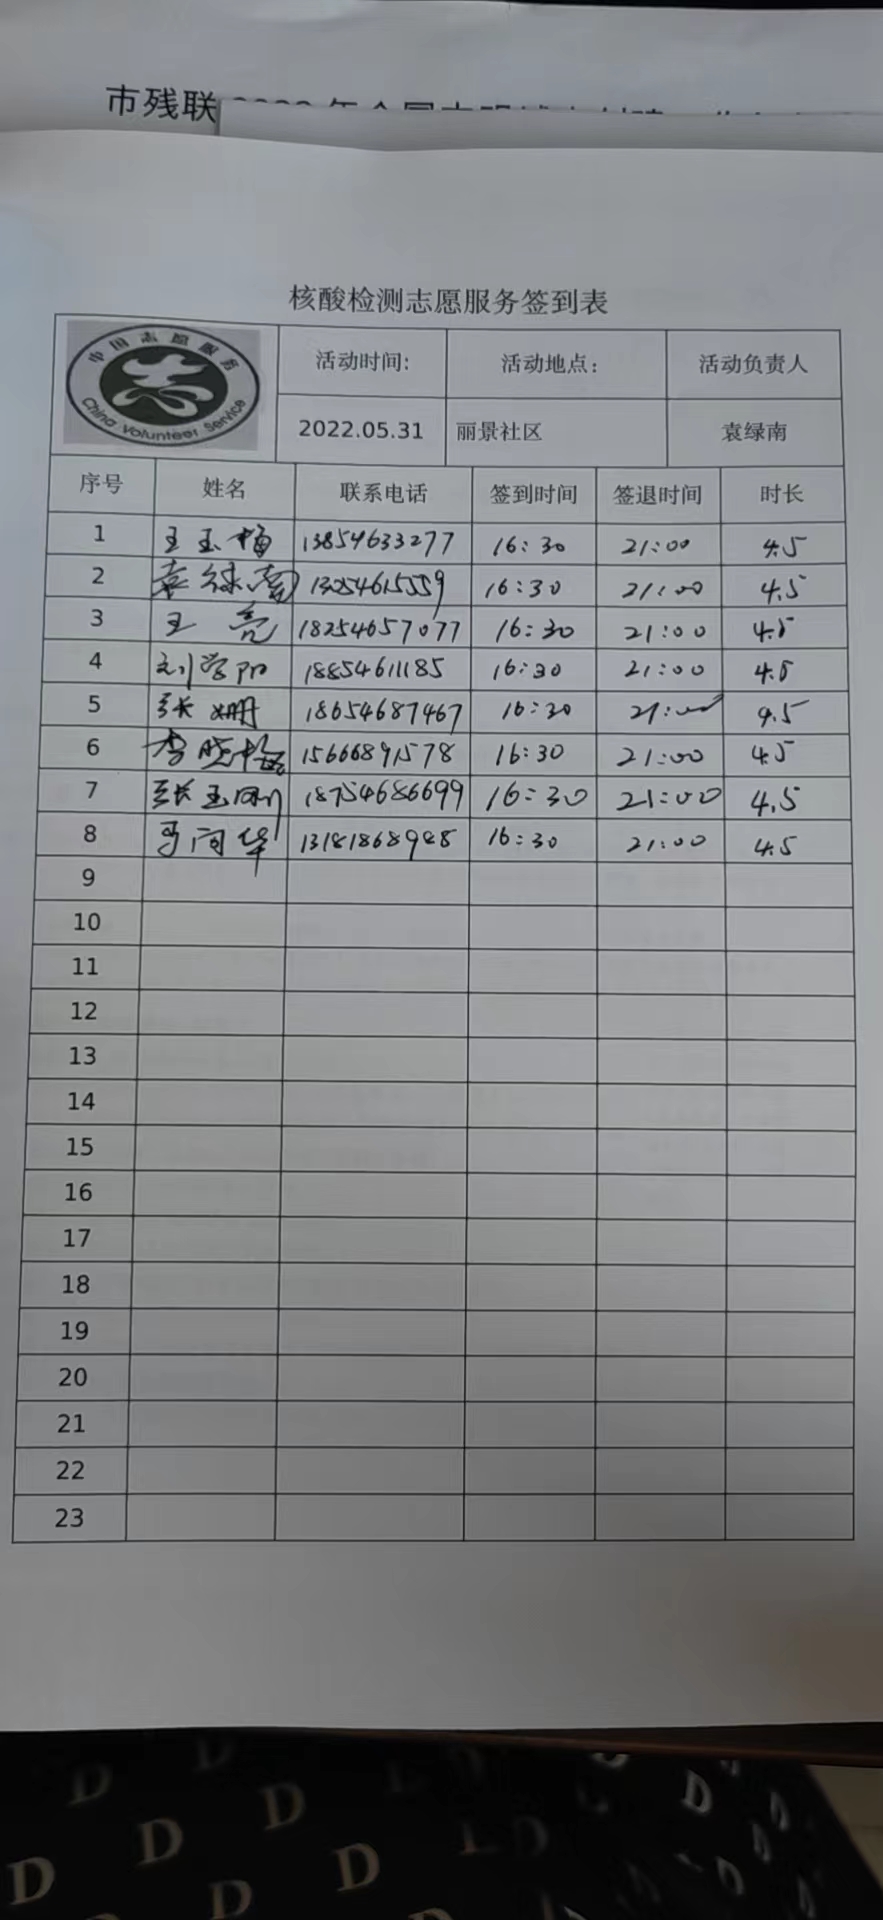 市残联
核酸检测志愿服务签到表
中国志愿服务
China Volunteer Service
活动时间: 活动地点: 活动负责人
2022.05.31 丽景社区 袁绿南
序号 姓名 联系电话 签到时间 签退时间 时长
1 王玉梅 13854633277 16:30 21:00 4.5
2 袁绿南 13054615559 16:30 21:00 4.5
3 王亮 18254657077 16:30 21:00 4.5
4 刘学阳 18854611185 16:30 21:00 4.5
5 张姗 18654687467 16:30 21:00 4.5
6 李晓梅 15666891578 16:30 21:00 4.5
7 张玉刚 18754686699 16:30 21:00 4.5
8 13181868948 16:30 21:00 4.5
9
10
11
12
13
14
15
16
17
18
19
20
21
22
23
D D D D D D D D